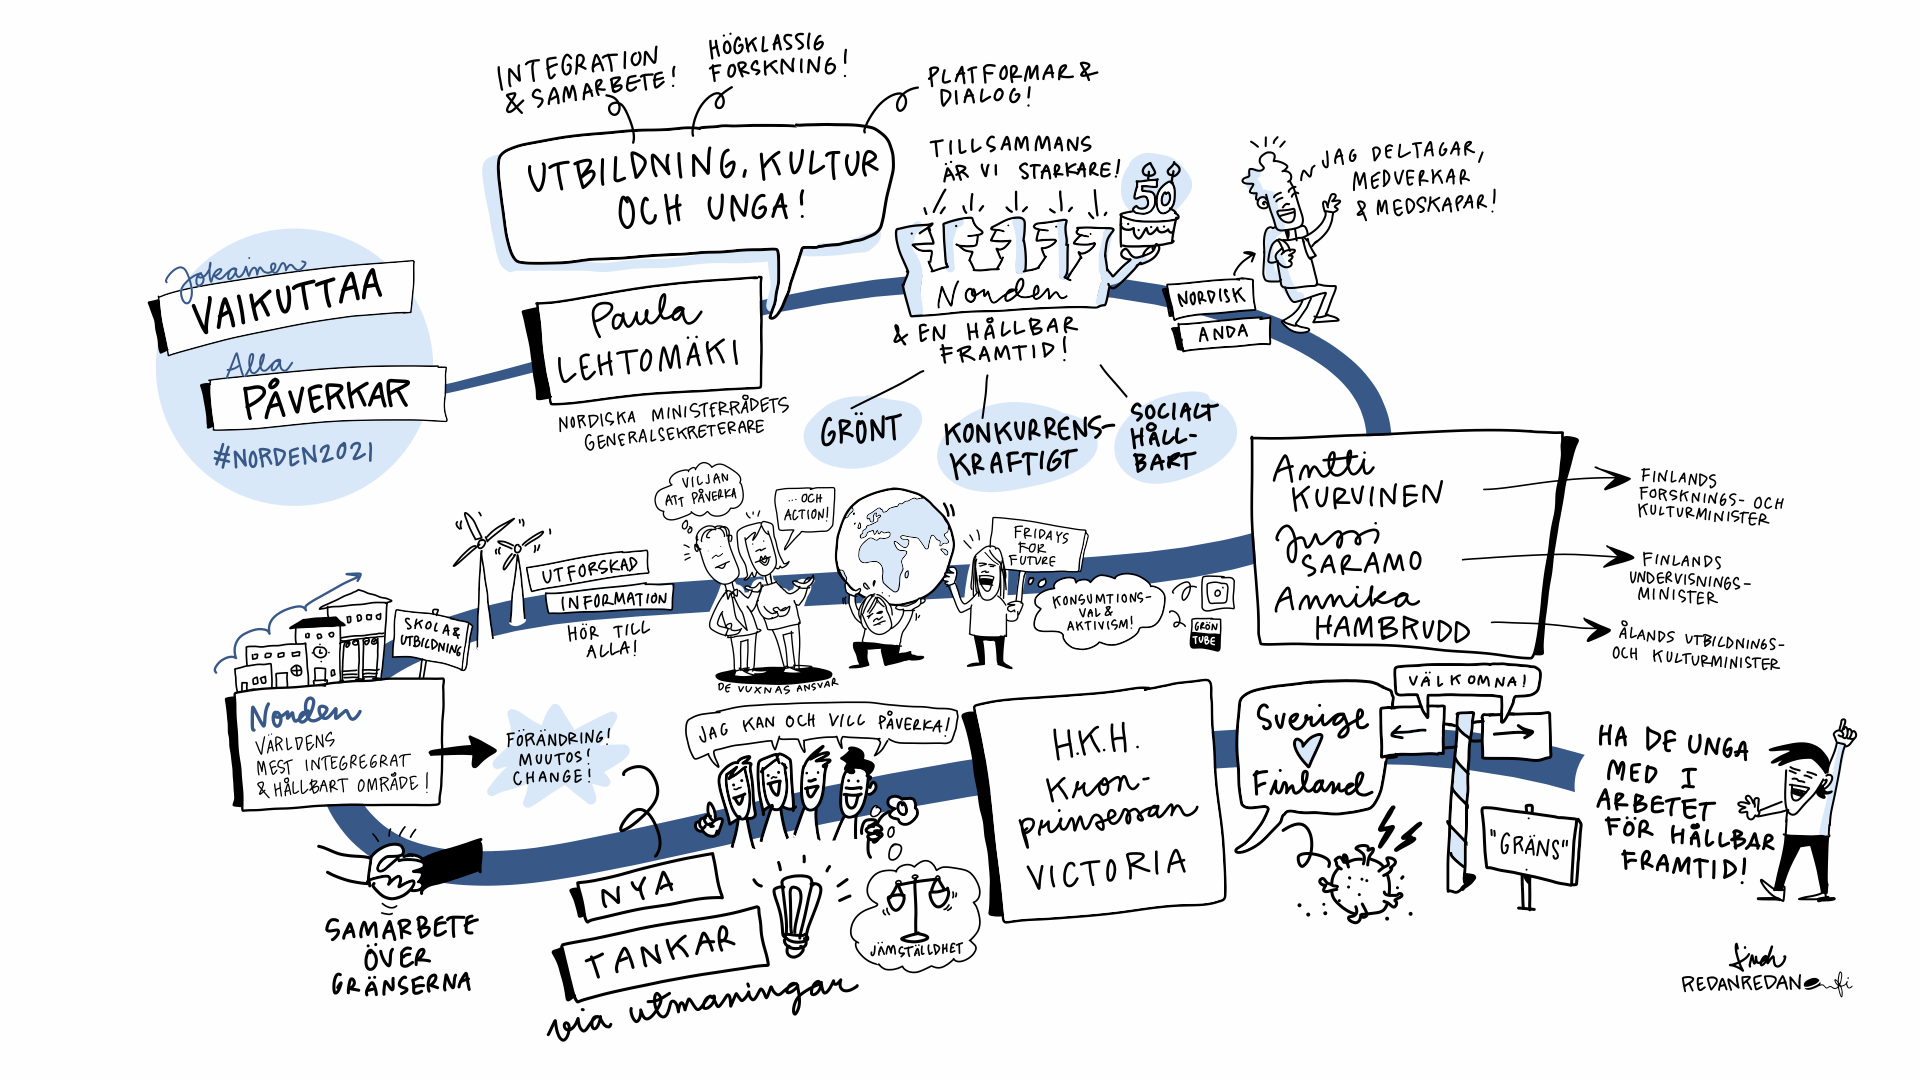 Jokainen
VAIKUTTAA
Alla
PÅVERKAR
#NORDEN2021
INTEGRATION
& SAMARBETE!
HÖGKLASSIG
FORSKNING!
PLATFORMAR &
DIALOG!
UTBILDNING, KULTUR
OCH UNGA!
Paula
LEHTOMÄKI
NORDISKA MINISTERRÅDETS
GENERALSEKRETERARE
TILLSAMMANS
ÄR VI STARKARE!
50
Norden
& EN HÅLLBAR
FRAMTID!
GRÖNT
KONKURRENS-
KRAFTIGT
SOCIALT
HÅLL-
BART
NORDISK
ANDA
JAG DELTAGAR,
MEDVERKAR
& MEDSKAPAR!
Antti
KURVINEN
FINLANDS
FORSKNINGS- OCH
KULTURMINISTER
Jussi
SARAMO
FINLANDS
UNDERVISNINGS-
MINISTER
Annika
HAMBRUDD
ÅLANDS UTBILDNINGS-
OCH KULTURMINISTER
FRIDAYS
FOR
FUTURE
KONSUMTIONS-
VAL &
AKTIVISM!
GRÖN
TUBE
VILJAN
ATT PÅVERKA
...OCH
ACTION!
DE VUXNAS ANSVAR
UTFORSKAD
INFORMATION
HÖR TILL
ALLA!
SKOLA &
UTBILDNING
Norden
VÄRLDENS
MEST INTEGREGRAT
& HÅLLBART OMRÅDE!
FÖRÄNDRING!
MUUTOS!
CHANGE!
SAMARBETE
ÖVER
GRÄNSERNA
NYA
TANKAR
via utmaningar
JAG KAN OCH VILL PÅVERKA!
JÄMSTÄLLDHET
H.K.H.
Kron-
prinsessan
VICTORIA
Sverige
Finland
VÄLKOMNA!
"GRÄNS"
HA DE UNGA
MED I
ARBETET
FÖR HÅLLBAR
FRAMTID!
REDANREDAN